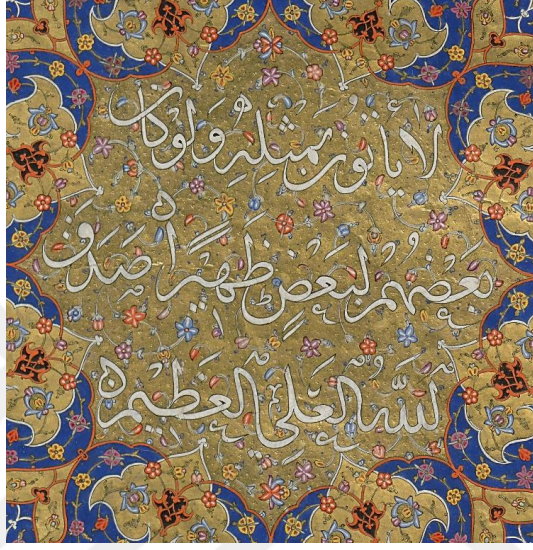 لَا يَأْتُونَ بِمِثْلِهِ وَلَوْ كَانَ
بَعْضُهُمْ لِبَعْضٍ ظَهِيرًا صَدَقَ
اللّٰهُ الْعَلِيُّ الْعَظِيمُ